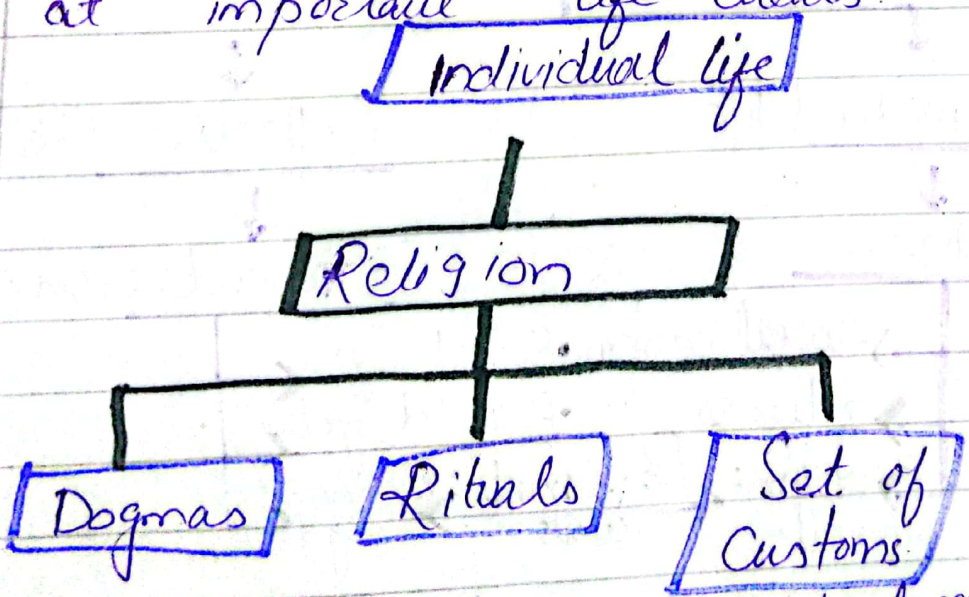 at important life
Individual life
Religion
Dogmas
Rituals
Set of
Customs.